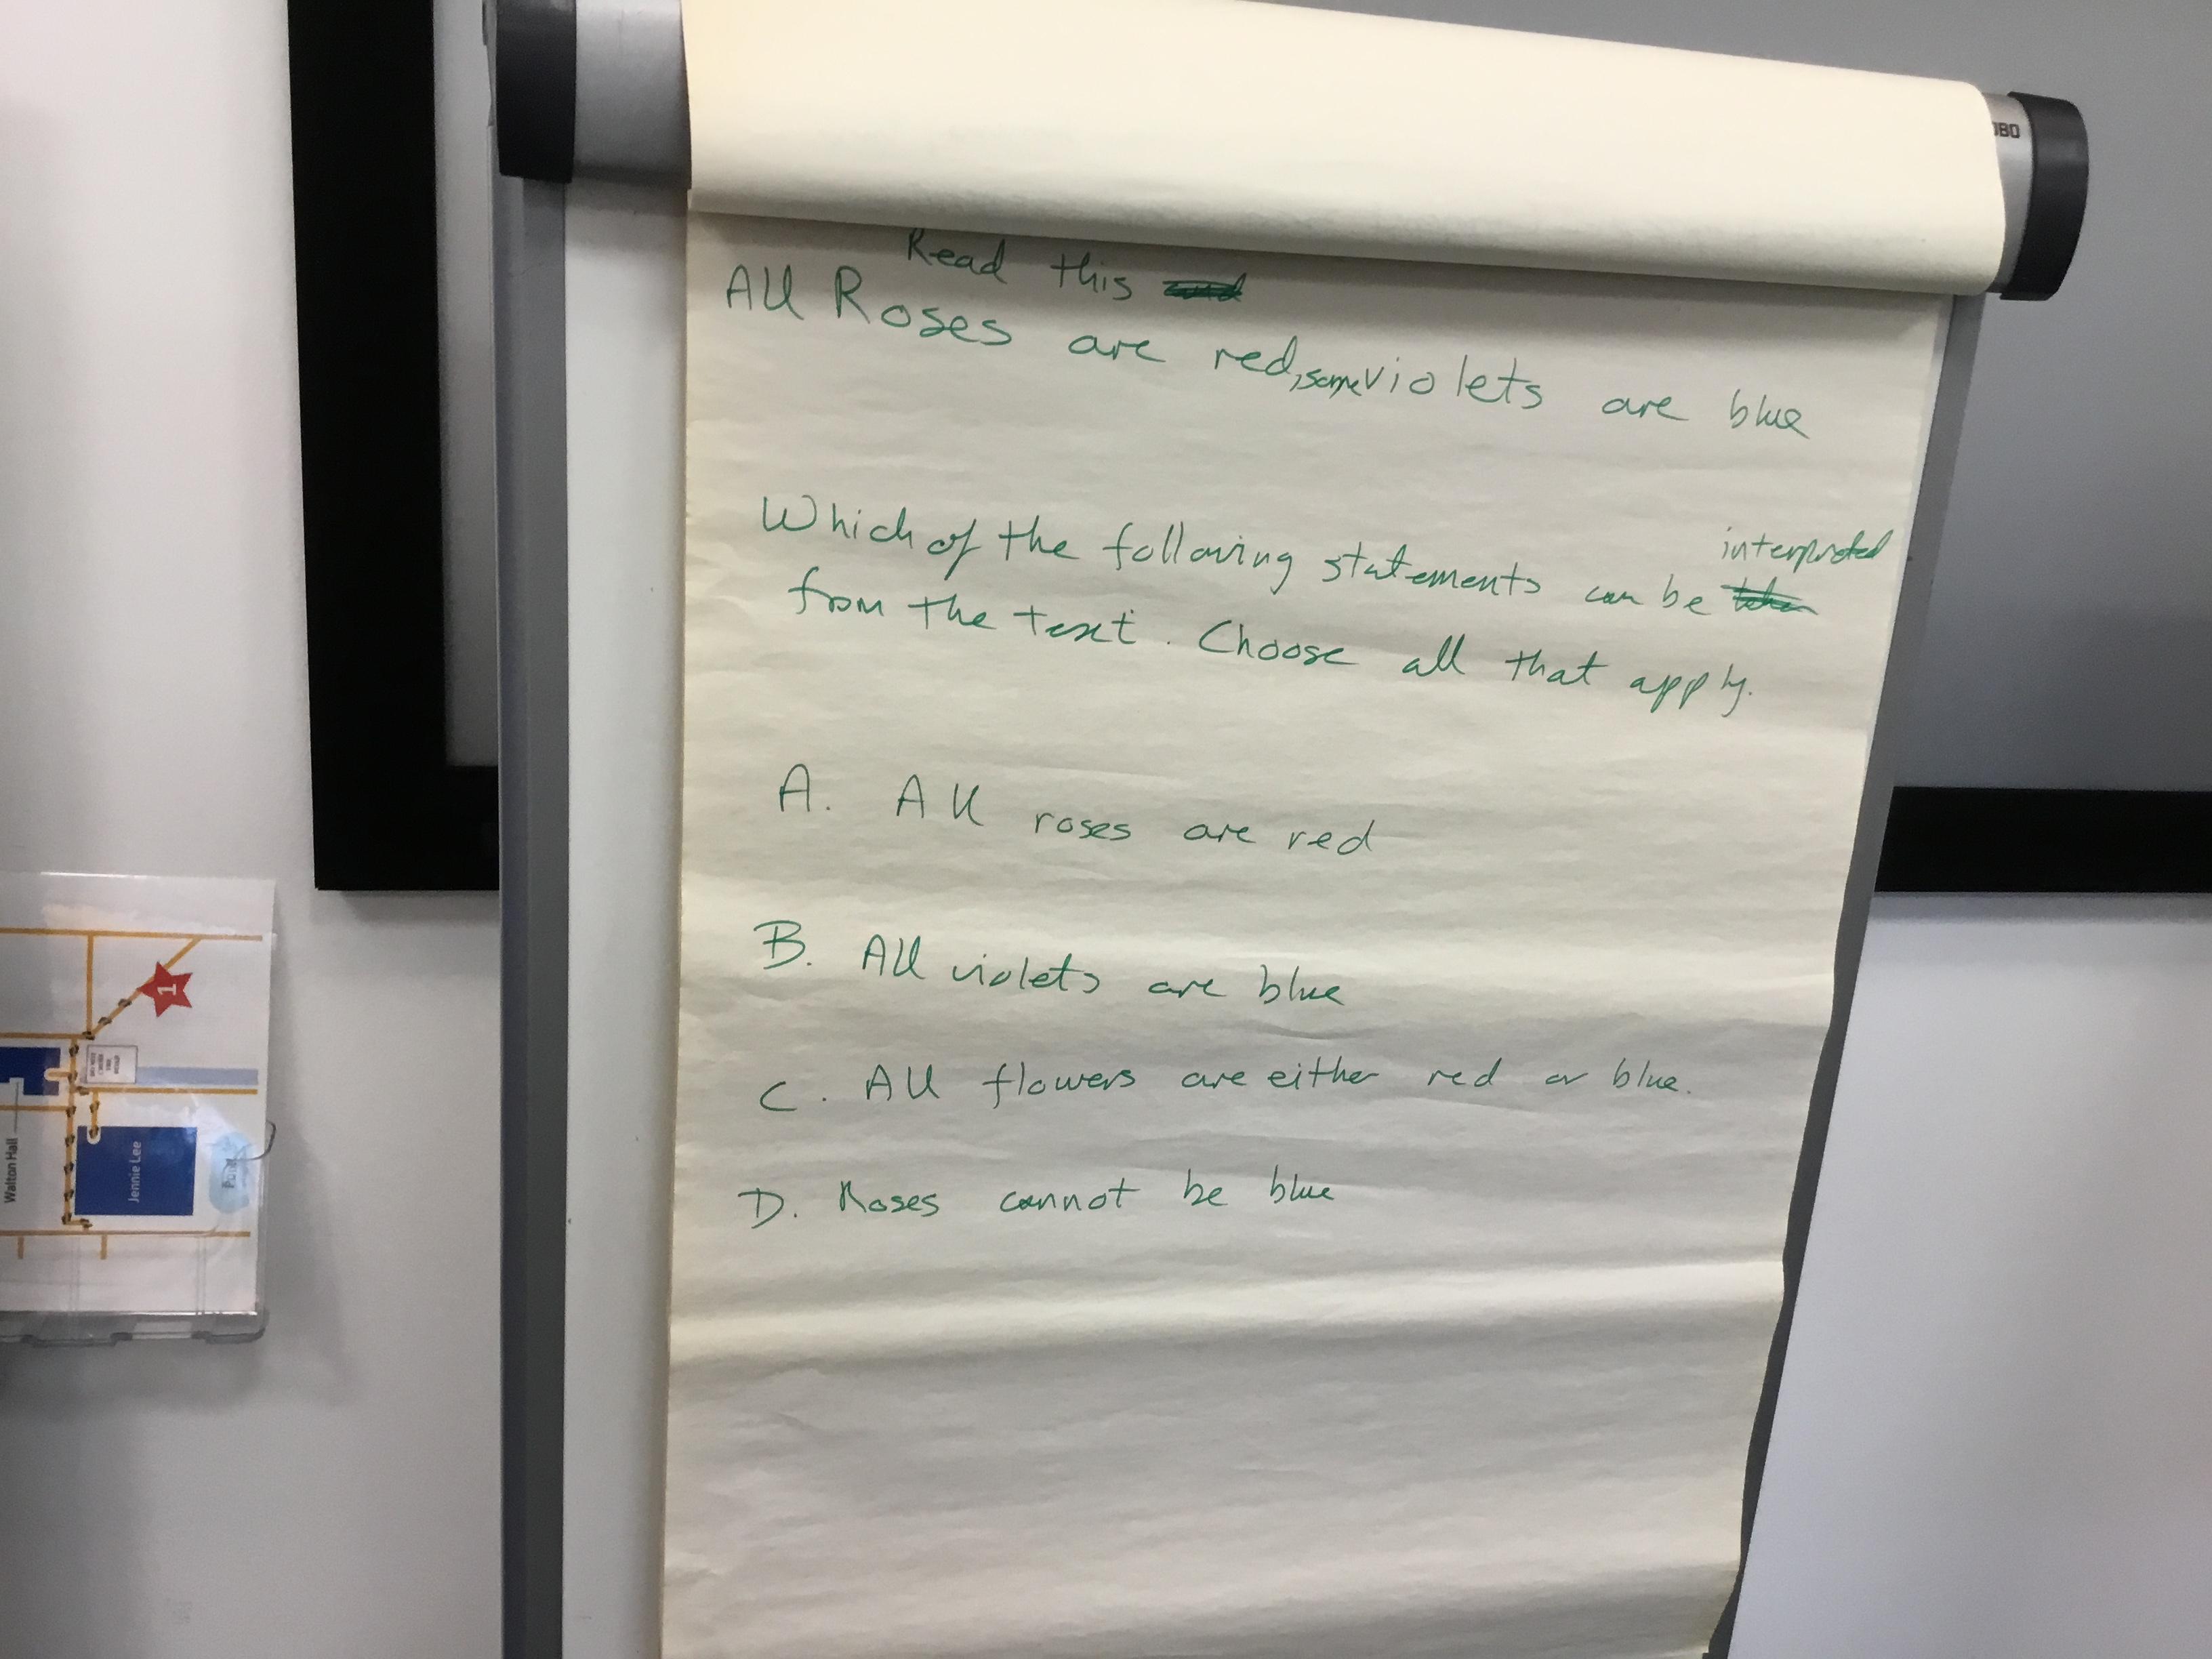 Read this
All Roses are red, some violets are blue
Which of the following statements can be interpreted
from the text. Choose all that apply.
A. All roses are red
B. All violets are blue
C. All flowers are either red or blue.
D. Roses cannot be blue
1
Walton Hall
Jennie Lee